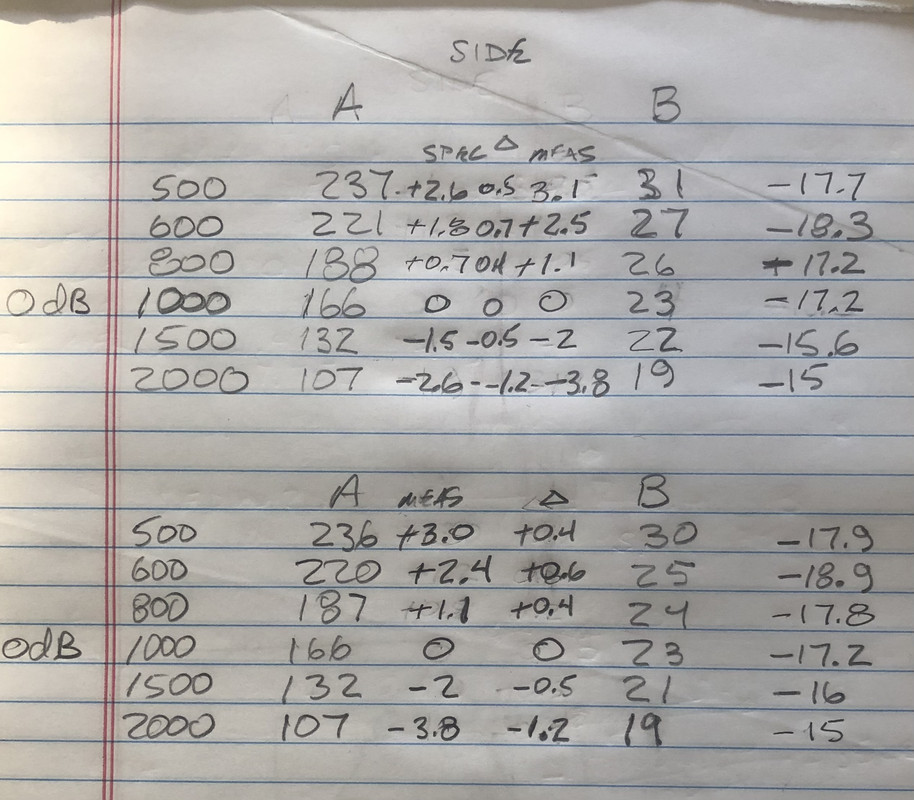 SIDE
A B
SPEC Δ MEAS
500 237 +2.6 0.5 3.1 31 -17.7
600 221 +1.8 0.7 +2.5 27 -18.3
800 188 +0.7 0.4 +1.1 26 -17.2
0dB 1000 166 0 0 0 23 -17.2
1500 132 -1.5 -0.5 -2 22 -15.6
2000 107 -2.6 -1.2 -3.8 19 -15
A MEAS Δ B
500 236 +3.0 +0.4 30 -17.9
600 220 +2.4 +0.6 25 -18.9
800 187 +1.1 +0.4 24 -17.8
0dB 1000 166 0 0 23 -17.2
1500 132 -2 -0.5 21 -16
2000 107 -3.8 -1.2 19 -15